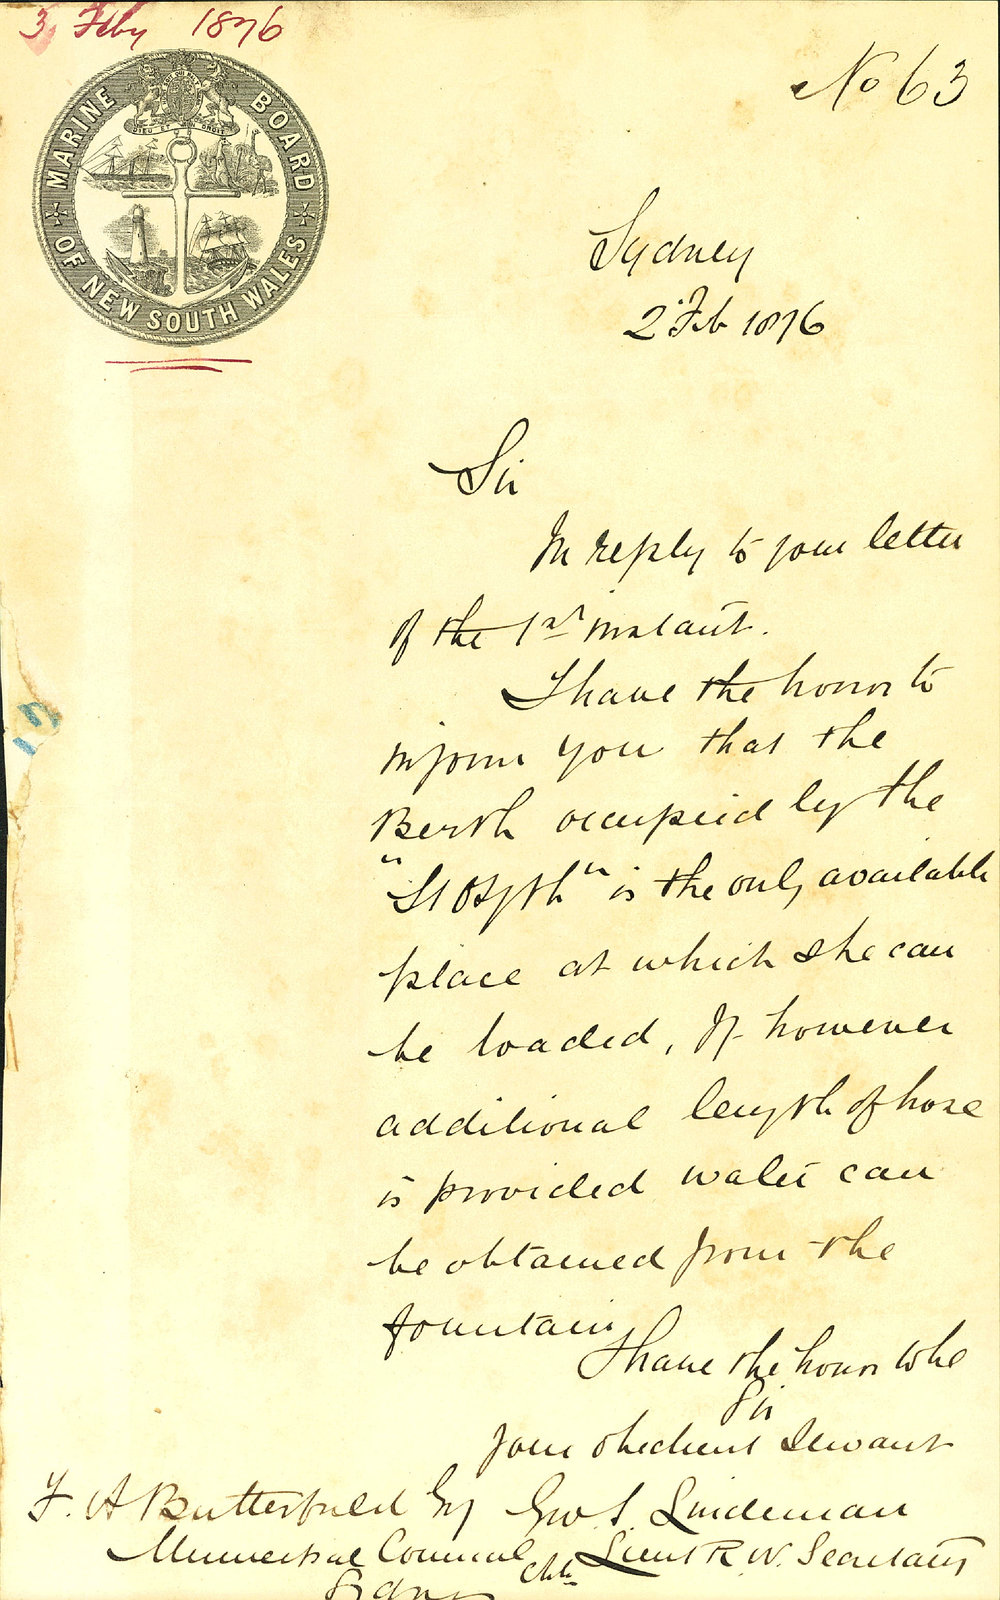 3 Feby 1876
MARINE BOARD
OF NEW SOUTH WALES
DIEU ET MON DROIT
No 63
Sydney
2 Feb 1876
Sir
In reply to your letter
of the 1st instant.
I have the honor to
inform you that the
Berth occupied by the
"St Osyth" is the only available
place at which she can
be loaded, If however
additional length of hose
is provided water can
be obtained from the
fountain
I have the honor to be
Sir
Your obedient Servant
F. A Butterfield Esq Geo. S. Lindeman
Municipal Council Lieut R. N. Secretary
Sydney